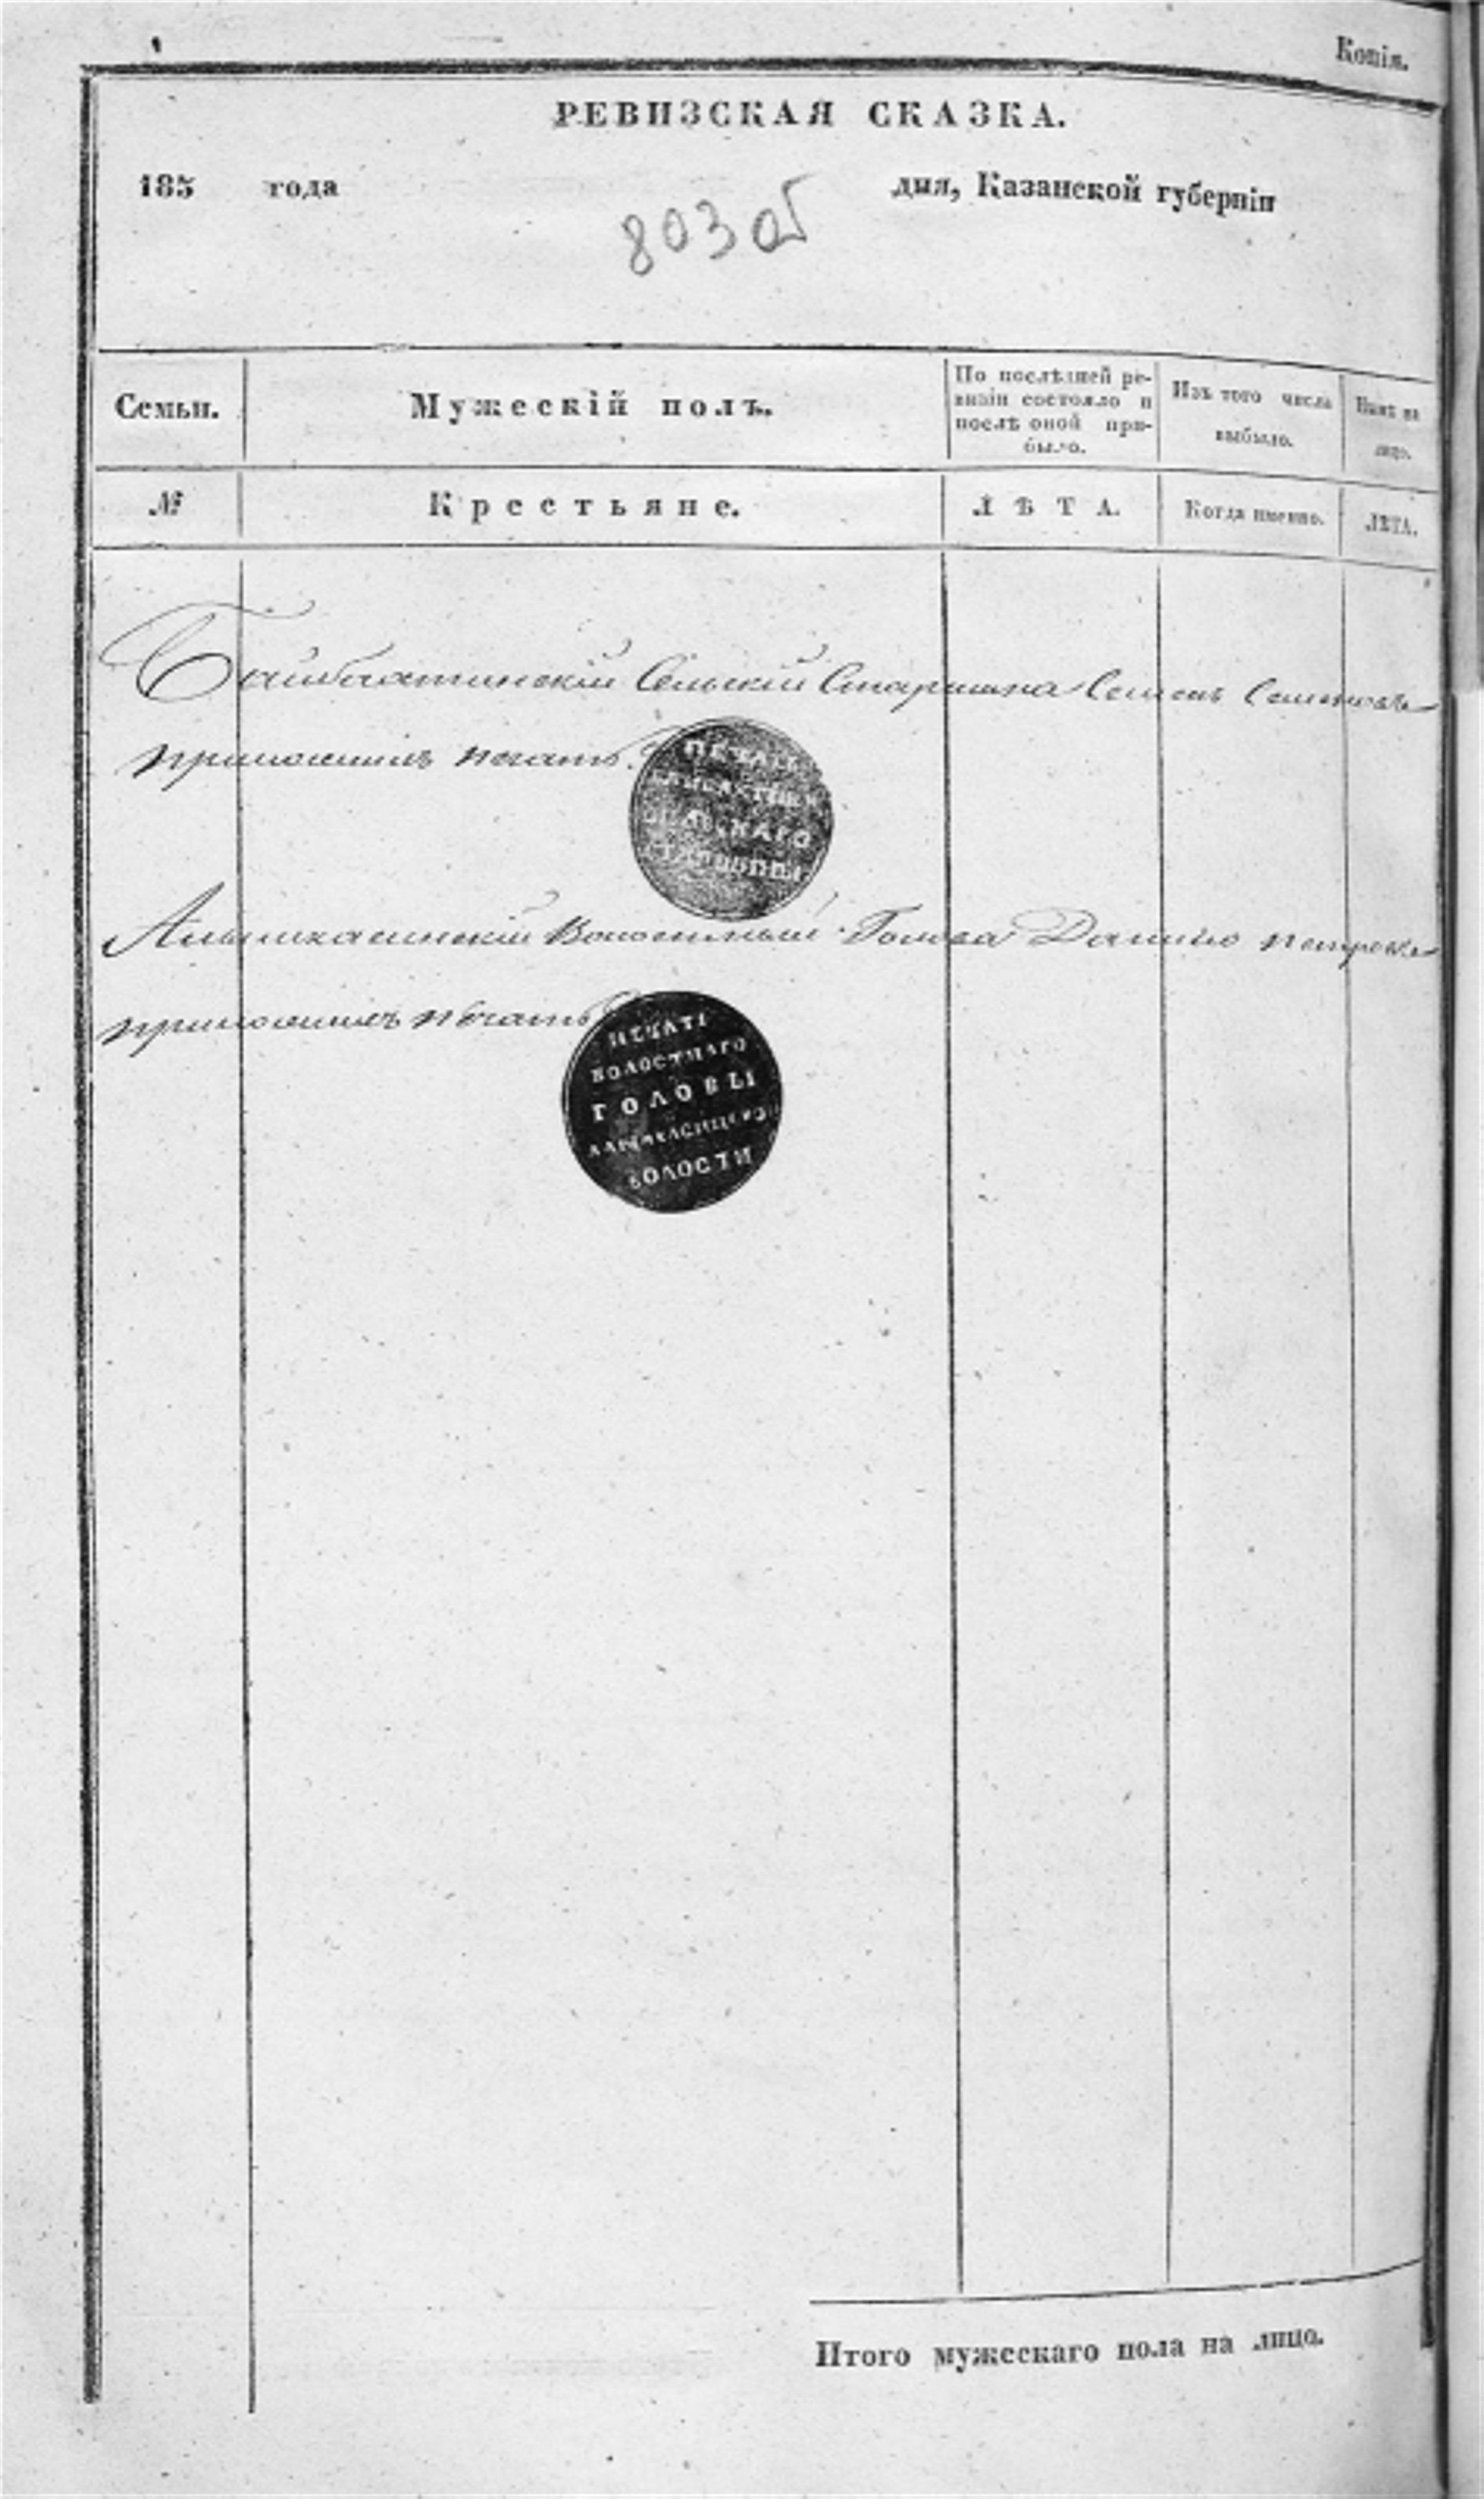 Копія.
РЕВИЗСКАЯ СКАЗКА.
185 года дня, Казанской губерніи
803 об
Семьи.
Мужескій полъ.
По послѣдней ре-
визіи состояло и
послѣ оной при-
было.
Изъ того числа
выбыло.
Нынѣ на
лицо.
№
Крестьяне.
ЛѢТА.
Когда именно.
ЛѢТА.
Сельскій Старшина Семенъ Семеновъ
приложилъ печать.
ПЕЧАТЬ
СЕЛЬСКАГО
СТАРШИНЫ
Волостный Голова Данило Петровъ
приложилъ печать
ПЕЧАТЬ
ВОЛОСТНАГО
ГОЛОВЫ
ВОЛОСТИ
Итого мужескаго пола на лицо.